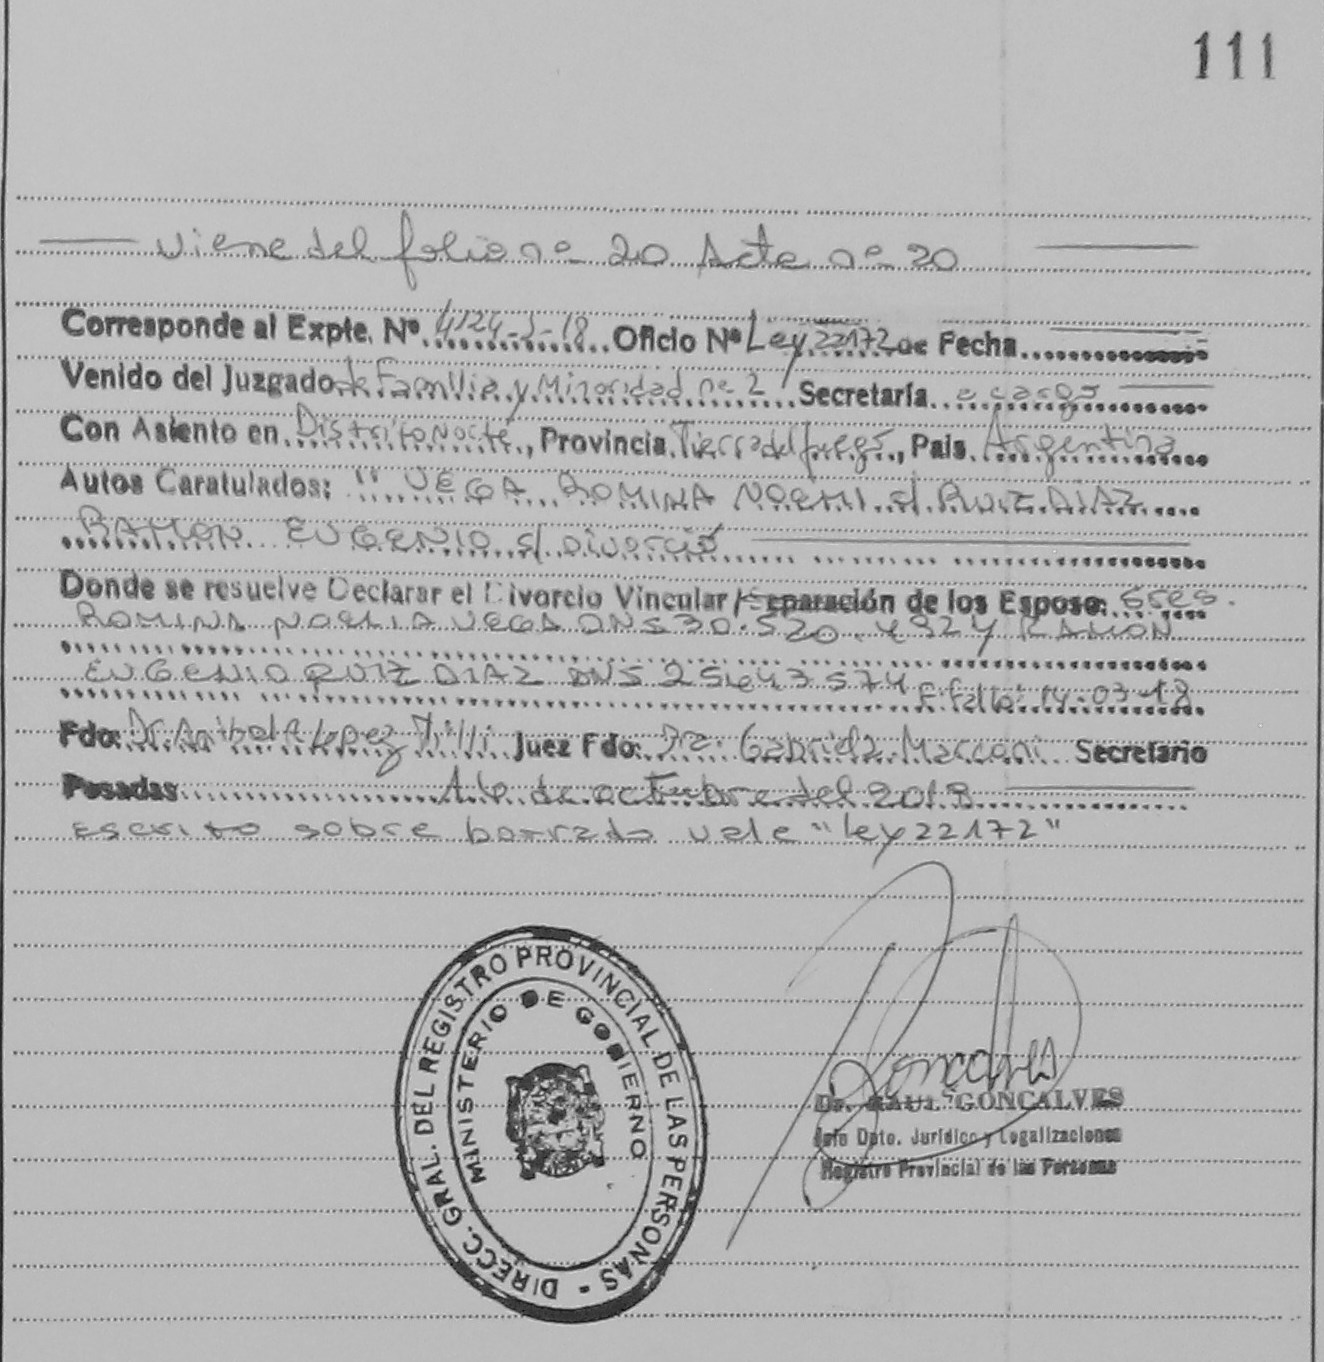 111
viene del folio nº 20 Acta nº 20
Corresponde al Expte. Nº 4124-J-18 Oficio Nº Ley 22172 de Fecha
Venido del Juzgado de Familia y Minoridad nº 2 Secretaría a cargo
Con Asiento en Distrito Norte, Provincia Tierra del fuego, Pais Argentina
Autos Caratulados: "VEGA ROMINA NOEMI s/ RUIZ DIAZ
RAMON EUGENIO s/ Divorcio
Donde se resuelve Declarar el Divorcio Vincular / Separación de los Esposos: Sres.
ROMINA NOELIA VEGA DNI 30.520. Y RAMON
EUGENIO RUIZ DIAZ DNI 25643574 F. fallo: 14-03-18
Fdo: Dr. Anibal R Lopez Tilli Juez Fdo: Dra. Gabriela Marconi Secretario
Posadas 16 de octubre del 2018
Escrito sobre borrado vale "ley 22172"
DIRECC. GRAL. DEL REGISTRO PROVINCIAL DE LAS PERSONAS -
MINISTERIO DE GOBIERNO
Goncalves
Dr. RAUL GONCALVES
Jefe Dpto. Jurídico y Legalizaciones
Registro Provincial de las Personas